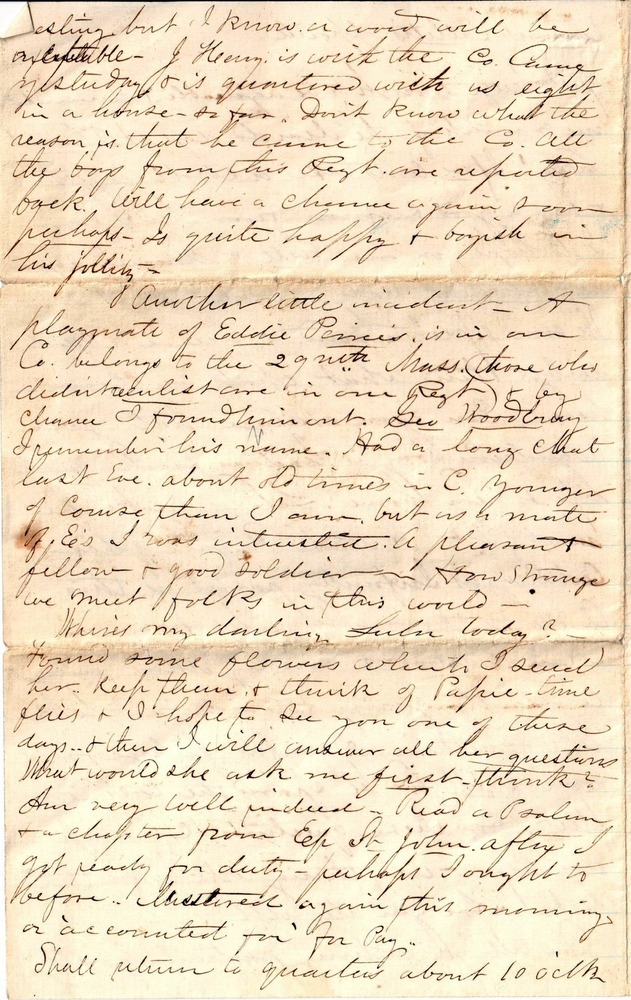 esting but I know a word will be
acceptable - J Henry is with the Co. Came
yesterday, & is quartered with us eight
in a house - so far. Don't know what the
reason is that he came to the Co. All
the boys from this Regt. are reported
back. Will have a chance again soon
perhaps - Is quite happy & boyish in
his jollity -
Another little incident - A
playmate of Eddie Peirce's is in our
Co. belongs to the 29nth Mass. (those who
didn't reenlist are in one Regt) & by
chance I found him out. Geo Woodbury
I remember his name. Had a long chat
last Eve. about old times in C. Younger
of course than I am. but as a mate
of E's I was interested. A pleasant
fellow & good soldier - How strange
we meet folks in this world -
Where's my darling Lulu today? -
Found some flowers which I send
her. Keep them, & think of Papie - time
flies & I hope to see you one of these
days.. & then I will answer all her questions
What would she ask me first - think?
Am very well indeed - Read a Psalm
& a chapter from Ep St. John. after I
got ready for duty - perhaps I ought to
before.. Mustered again this morning,
or "accounted for" for Pay..
Shall return to quarters about 10 oclk